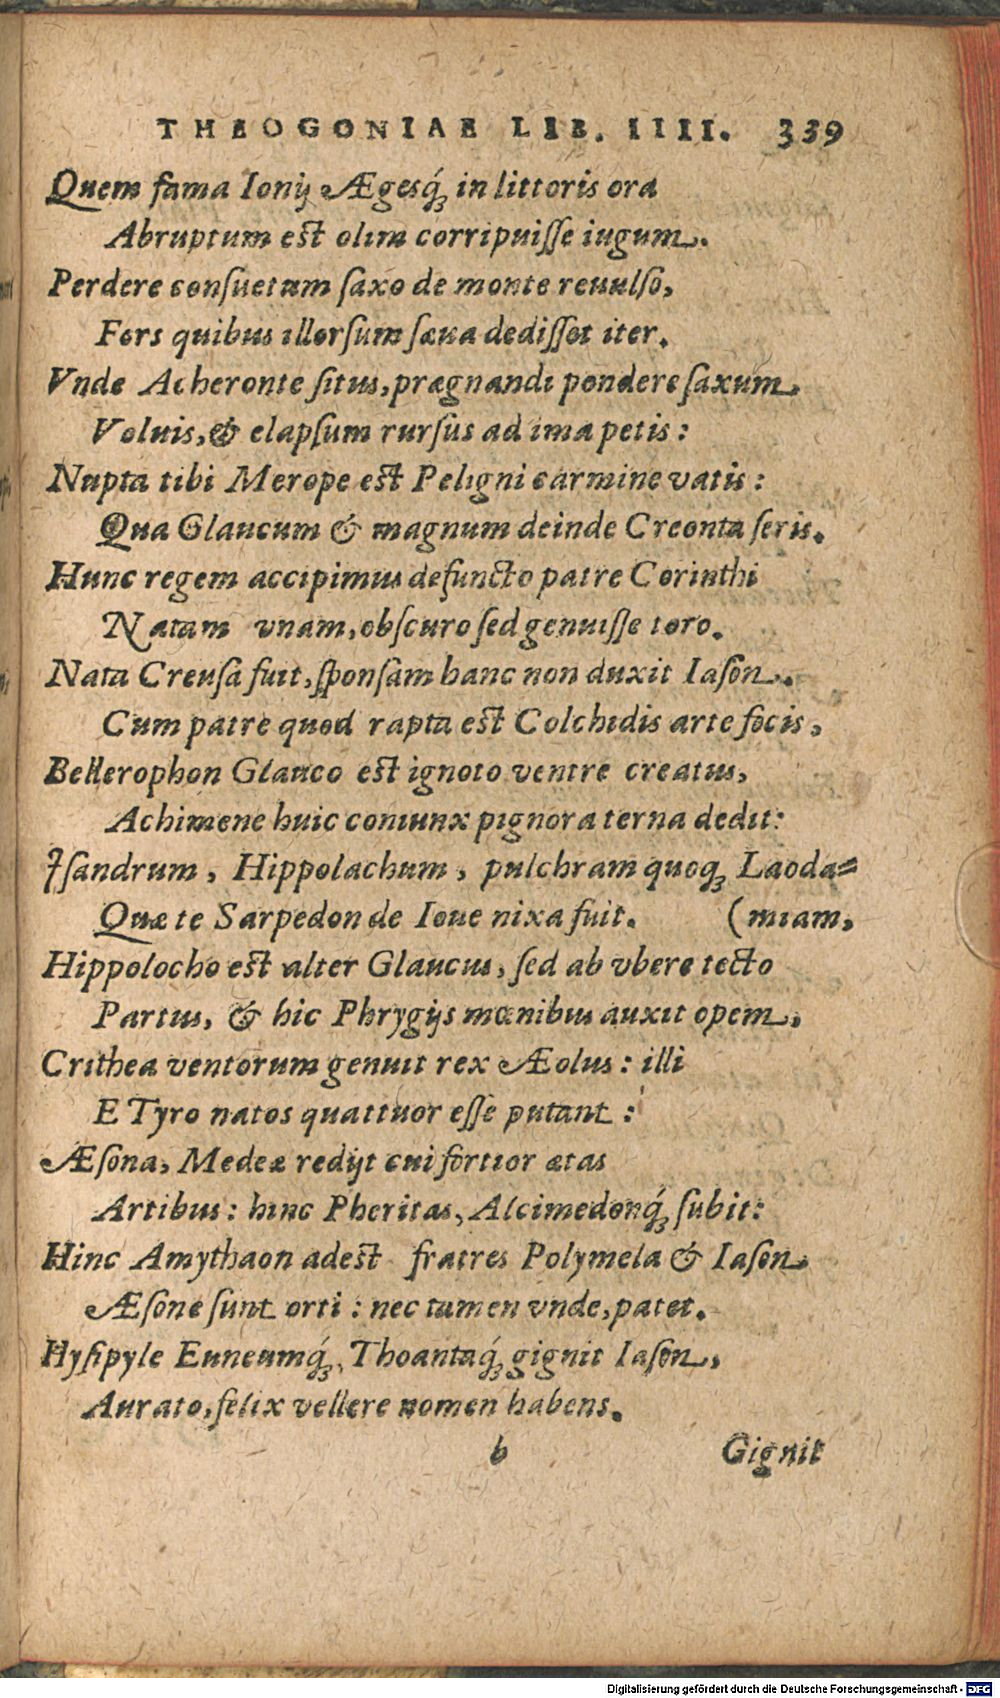 THEOGONIAE LIB. IIII. 339
Quem fama Ionij Ægesq́ue in littoris ora
Abruptum est olim corripuisse iugum.
Perdere consuetum saxo de monte reuulso,
Fors quibus illorsum sæua dedisset iter.
Vnde Acheronte situs, prægnandi pondere saxum
Voluis, & elapsum rursùs ad ima petis:
Nupta tibi Merope est Peligni carmine vatis:
Qua Glaucum & magnum deinde Creonta seris.
Hunc regem accipimus defuncto patre Corinthi
Natam vnam, obscuro sed genuisse toro.
Nata Creusa fuit, sponsam hanc non duxit Iason.
Cum patre quod rapta est Colchidis arte focis,
Bellerophon Glauco est ignoto ventre creatus,
Achimene huic coniunx pignora terna dedit:
Isandrum, Hippolachum, pulchram quoq; Laoda=
Quæ te Sarpedon de Ioue nixa fuit. (miam,
Hippolocho est alter Glaucus, sed ab vbere tecto
Partus, & hic Phrygijs manibus auxit opem,
Crithea ventorum genuit rex Æolus: illi
E Tyro natos quattuor esse putant:
Æsona, Medeæ redijt cui fortior ætas
Artibus: hinc Pheritas, Alcimedonq́; subit:
Hinc Amythaon adest fratres Polymela & Iason
Æsone sunt orti: nec tamen vnde, patet.
Hysipyle Euneumq́;, Thoantaq́; gignit Iason,
Aurato, felix vellere nomen habens.
b Gignit
Digitalisierung gefördert durch die Deutsche Forschungsgemeinschaft - DFG